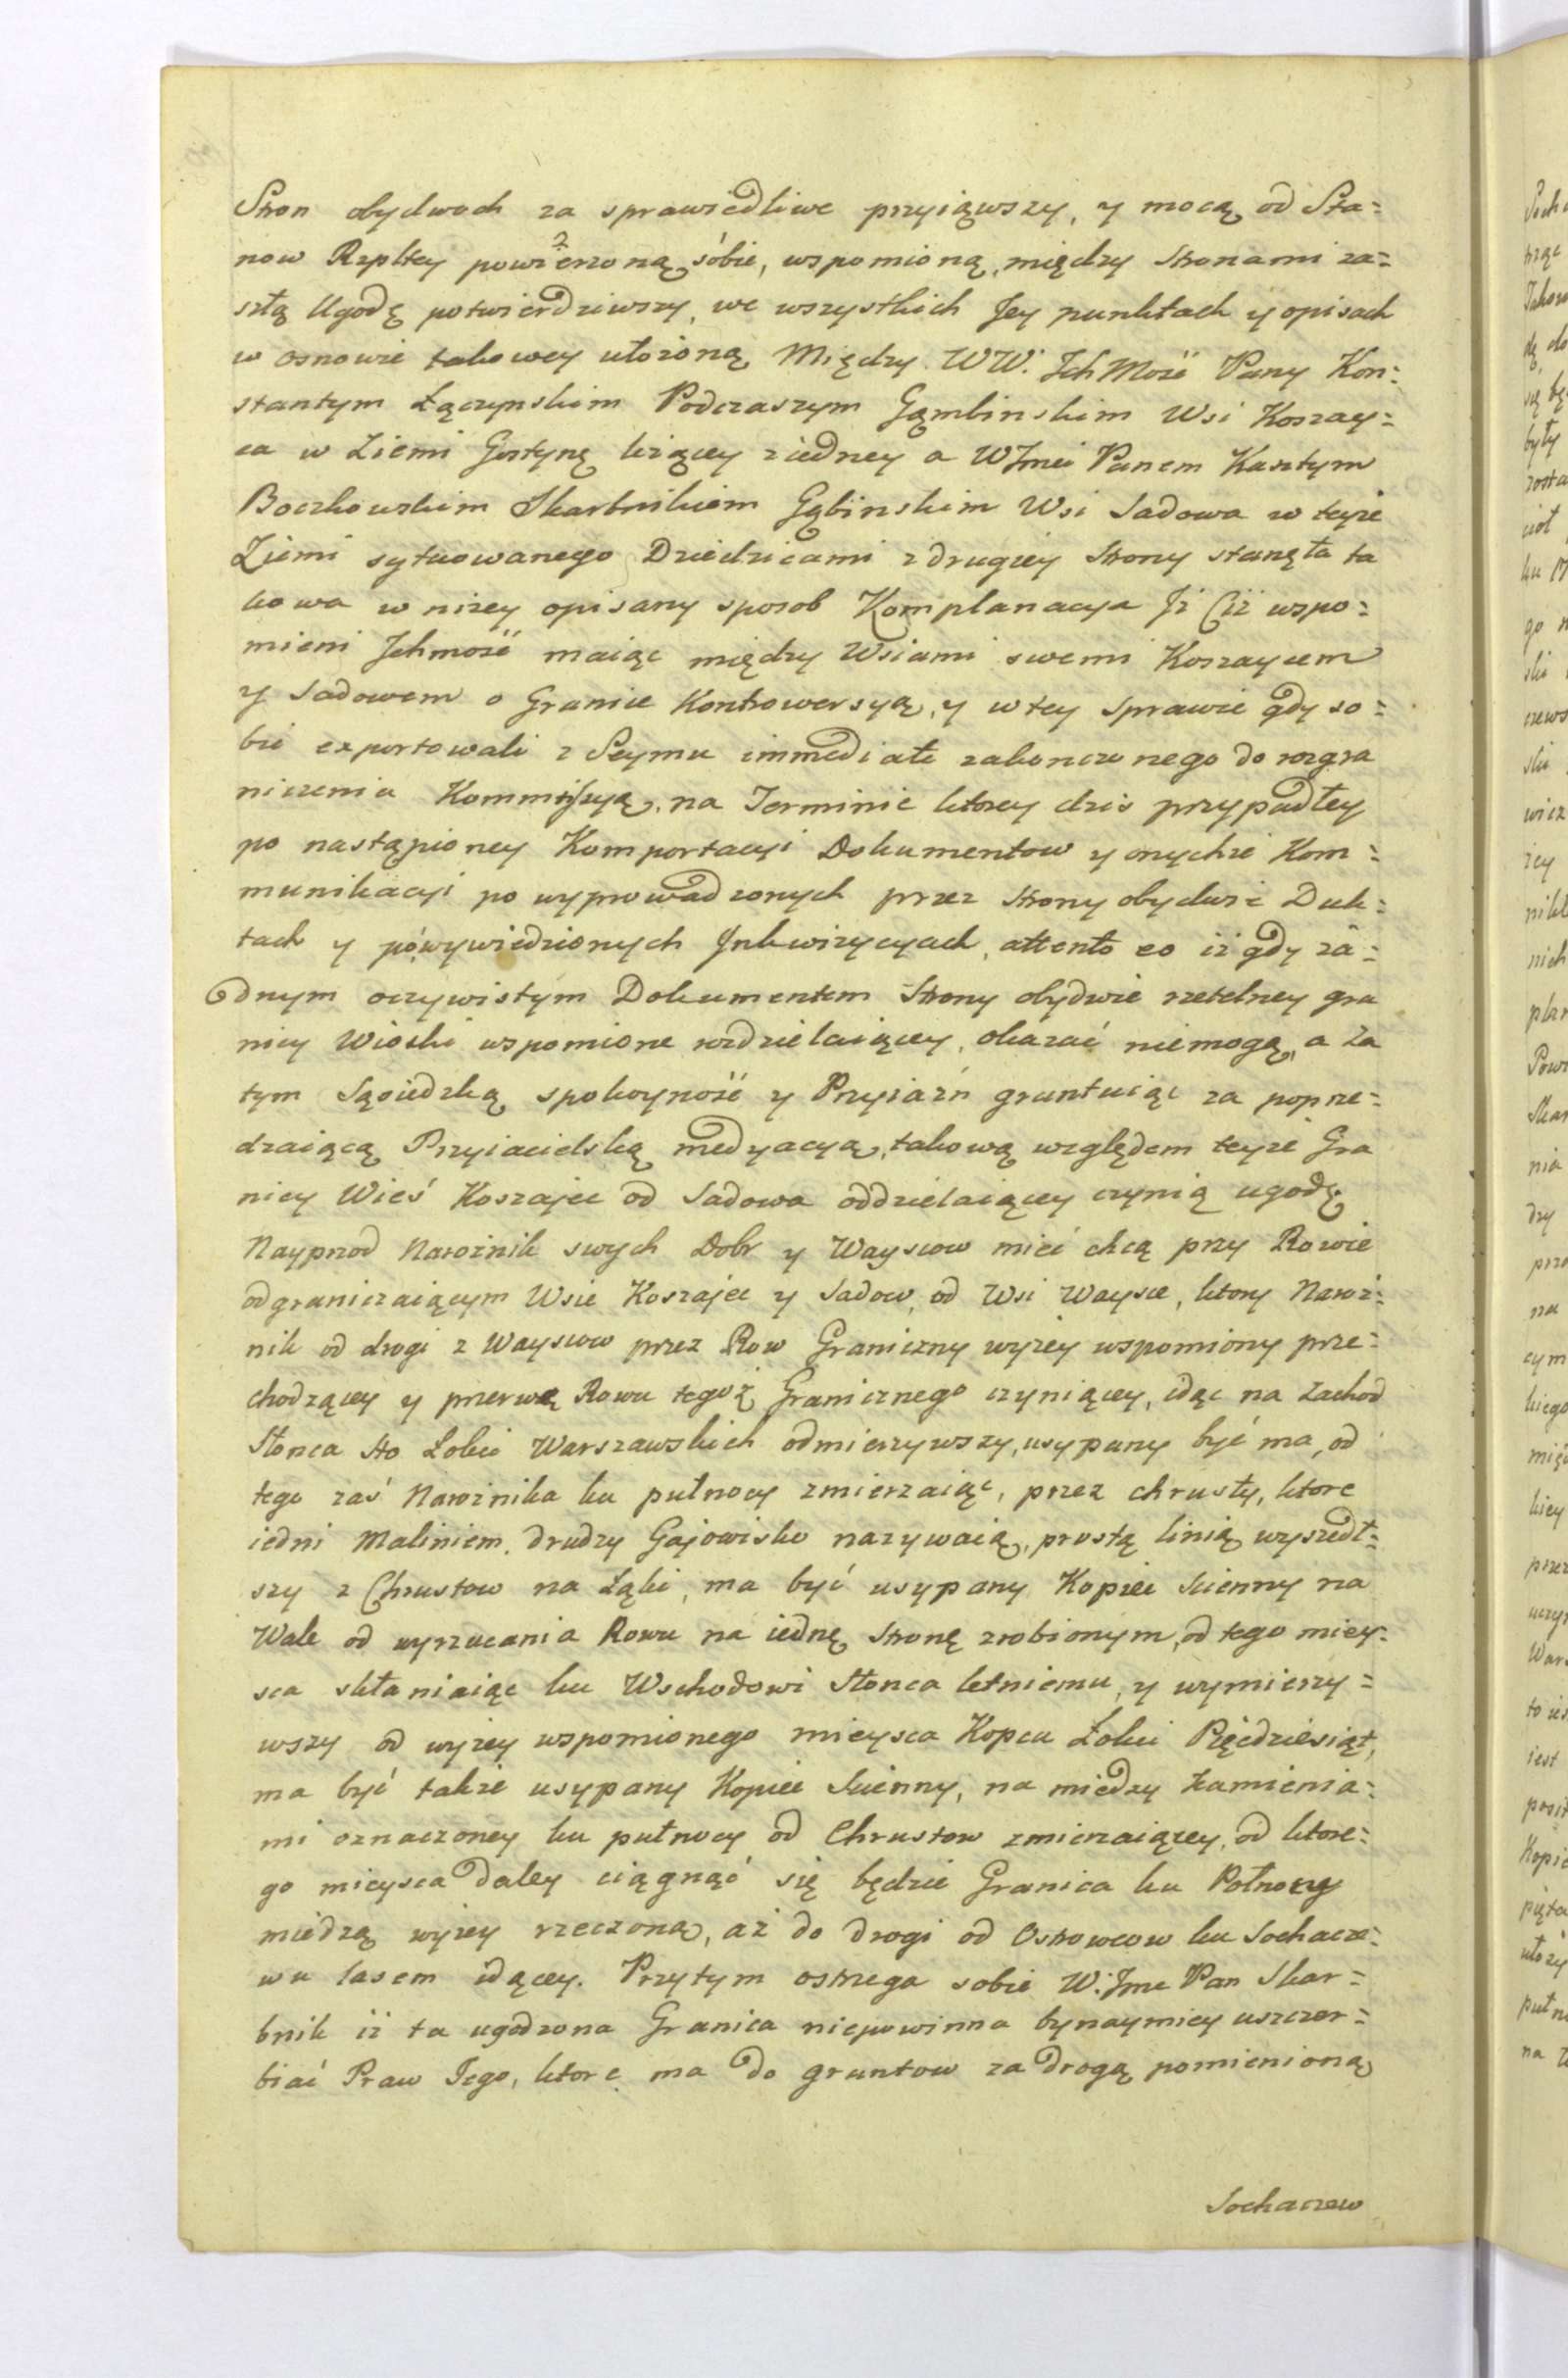 Stron obydwoch za sprawiedliwe przyiąwszy, y mocą od Sta=
now Rzpltey powierzoną sobie, wspomioną między Stronami za=
szłą Ugodę potwierdziwszy, we wszystkich Jey punktach y opisach
w osnowie takowey ułożoną Między WW. Ich Mość Pany Kon=
stantym Łączynskim Podczaszym Gąmbinskim Wsi Koszay=
ca w Ziemi Gostynę leżącey z iedney a WJmci Panem Kaietym
Boczkowskim Skarbnikiem Gąbinskim Wsi Sadowa w teyże
Ziemi sytuowanego Dziedzicami z drugiey Strony stanęła ta
kowa w niżey opisany sposob Komplanacya Iż Ciż wspo=
mieni Ichmość maiąc między Wsiami swemi Koszaycem
y Sadowem o Granice Kontrowersyą, y w tey Sprawie gdy so=
bie exportowali z Seymu immediate zakonczonego do rozgra
niczenia Kommissyą, na Terminie ktorey dzis przypadłey
po nastąpioney Komportacyi Dokumentow y onychże Kom=
munikacyi po wyprowadzonych przez Strony obydwie Duk=
tach y powywiedzionych Inkwizycyach, attento eo iż gdy ża=
dnym oczywistym Dokumentem Strony obydwie rzetelney gra
nicy Wioski wspomione rozdzielaiącey, okazać niemogą, a za
tym Sąsiedzką spokoyność y Przyiaźń gruntuiąc za poprze=
dzaiącą Przyiacielską medyacyą, takową względem teyże Gra
nicy Wieś Koszajec od Sadowa oddzielaiącey czynią ugodę.
Nayprzod Narożnik swych Dobr y Waysow mieć chcą przy Rowie
odgraniczaiącym Wsie Koszajec y Sadow, od Wsi Waysce, ktory Naroż=
nik od drogi z Waysow przez Row Graniczny wyżey wspomiony prze=
chodzącey y przerwę Rowu tegoż Granicznego czyniącey, idąc na Zachod
Słonca Sto Łokci Warszawskich odmierzywszy, usypany być ma, od
tego zaś Narożnika ku pułnocy zmierzaiąc, przez chrusty, ktore
iedni Maliniem, drudzy Gajowisko nazywaią, prostą linią wyszedł=
szy z Chrustow na Łąki, ma być usypany Kopiec Scienny na
Wale od wyrzucania Rowu na iednę Stronę zrobionym, od tego miey=
sca skłaniaiąc ku Wschodowi Słonca letniemu, y wymierzy=
wszy od wyżey wspomionego mieysca Kopca Łokci Pięćdziesiąt,
ma być także usypany Kopiec Scienny, na miedzy kamienia=
mi oznaczoney ku pułnocy od Chrustow zmierzaiącey, od ktore=
go mieysca daley ciągnąć się będzie Granica ku Połnocy
miedzą wyżey rzeczoną, aż do drogi od Ostrowcow ku Sochacze=
wu lasem idącey. Przytym ostrzega sobie W. Jmc Pan Skar=
bnik iż ta ugodzona Granica niepowinna bynaymiey uszczer=
biać Praw Iego, ktore ma do gruntow za drogą pomienioną
Sochaczew